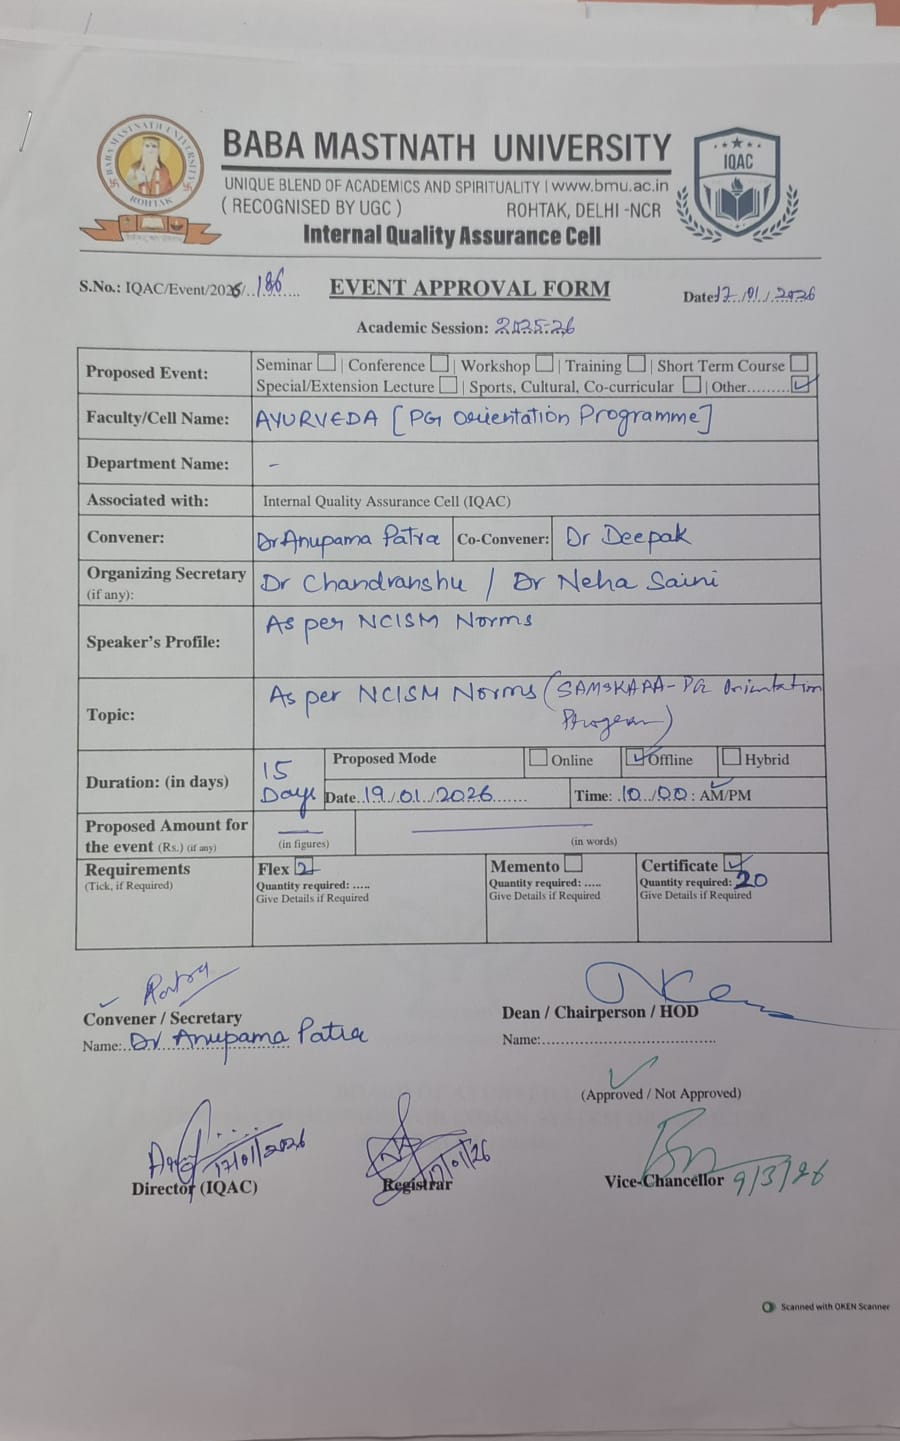 BABA MASTNATH UNIVERSITY
UNIQUE BLEND OF ACADEMICS AND SPIRITUALITY | www.bmu.ac.in
( RECOGNISED BY UGC ) ROHTAK, DELHI -NCR
Internal Quality Assurance Cell
BABA MASTNATH UNIVERSITY
ROHTAK
IQAC
S.No.: IQAC/Event/2025/..186.... EVENT APPROVAL FORM Date:17./01./.2026
Academic Session: 2025-26
Proposed Event: Seminar | Conference | Workshop | Training | Short Term Course
Special/Extension Lecture | Sports, Cultural, Co-curricular | Other.........
Faculty/Cell Name: AYURVEDA [PG Orientation Programme]
Department Name: -
Associated with: Internal Quality Assurance Cell (IQAC)
Convener: Dr Anupama Patra Co-Convener: Dr Deepak
Organizing Secretary (if any): Dr Chandranshu / Dr Neha Saini
Speaker's Profile: As per NCISM Norms
Topic: As per NCISM Norms (SAMSKARA-PG Orientation
Program)
Duration: (in days) 15 Days Proposed Mode Online Offline Hybrid
Date..19./.01./.2026....... Time: .10../00: AM/PM
Proposed Amount for the event (Rs.) (if any) (in figures) (in words)
Requirements (Tick, if Required)
Flex 2
Quantity required: .....
Give Details if Required
Memento
Quantity required: .....
Give Details if Required
Certificate
Quantity required: 20
Give Details if Required
Patra
Convener / Secretary
Name:..Dr. Anupama Patra
Dean / Chairperson / HOD
Name:............................................
(Approved / Not Approved)
17/01/2026
Director (IQAC)
17/01/26
Registrar
Vice-Chancellor 9/3/26
Scanned with OKEN Scanner